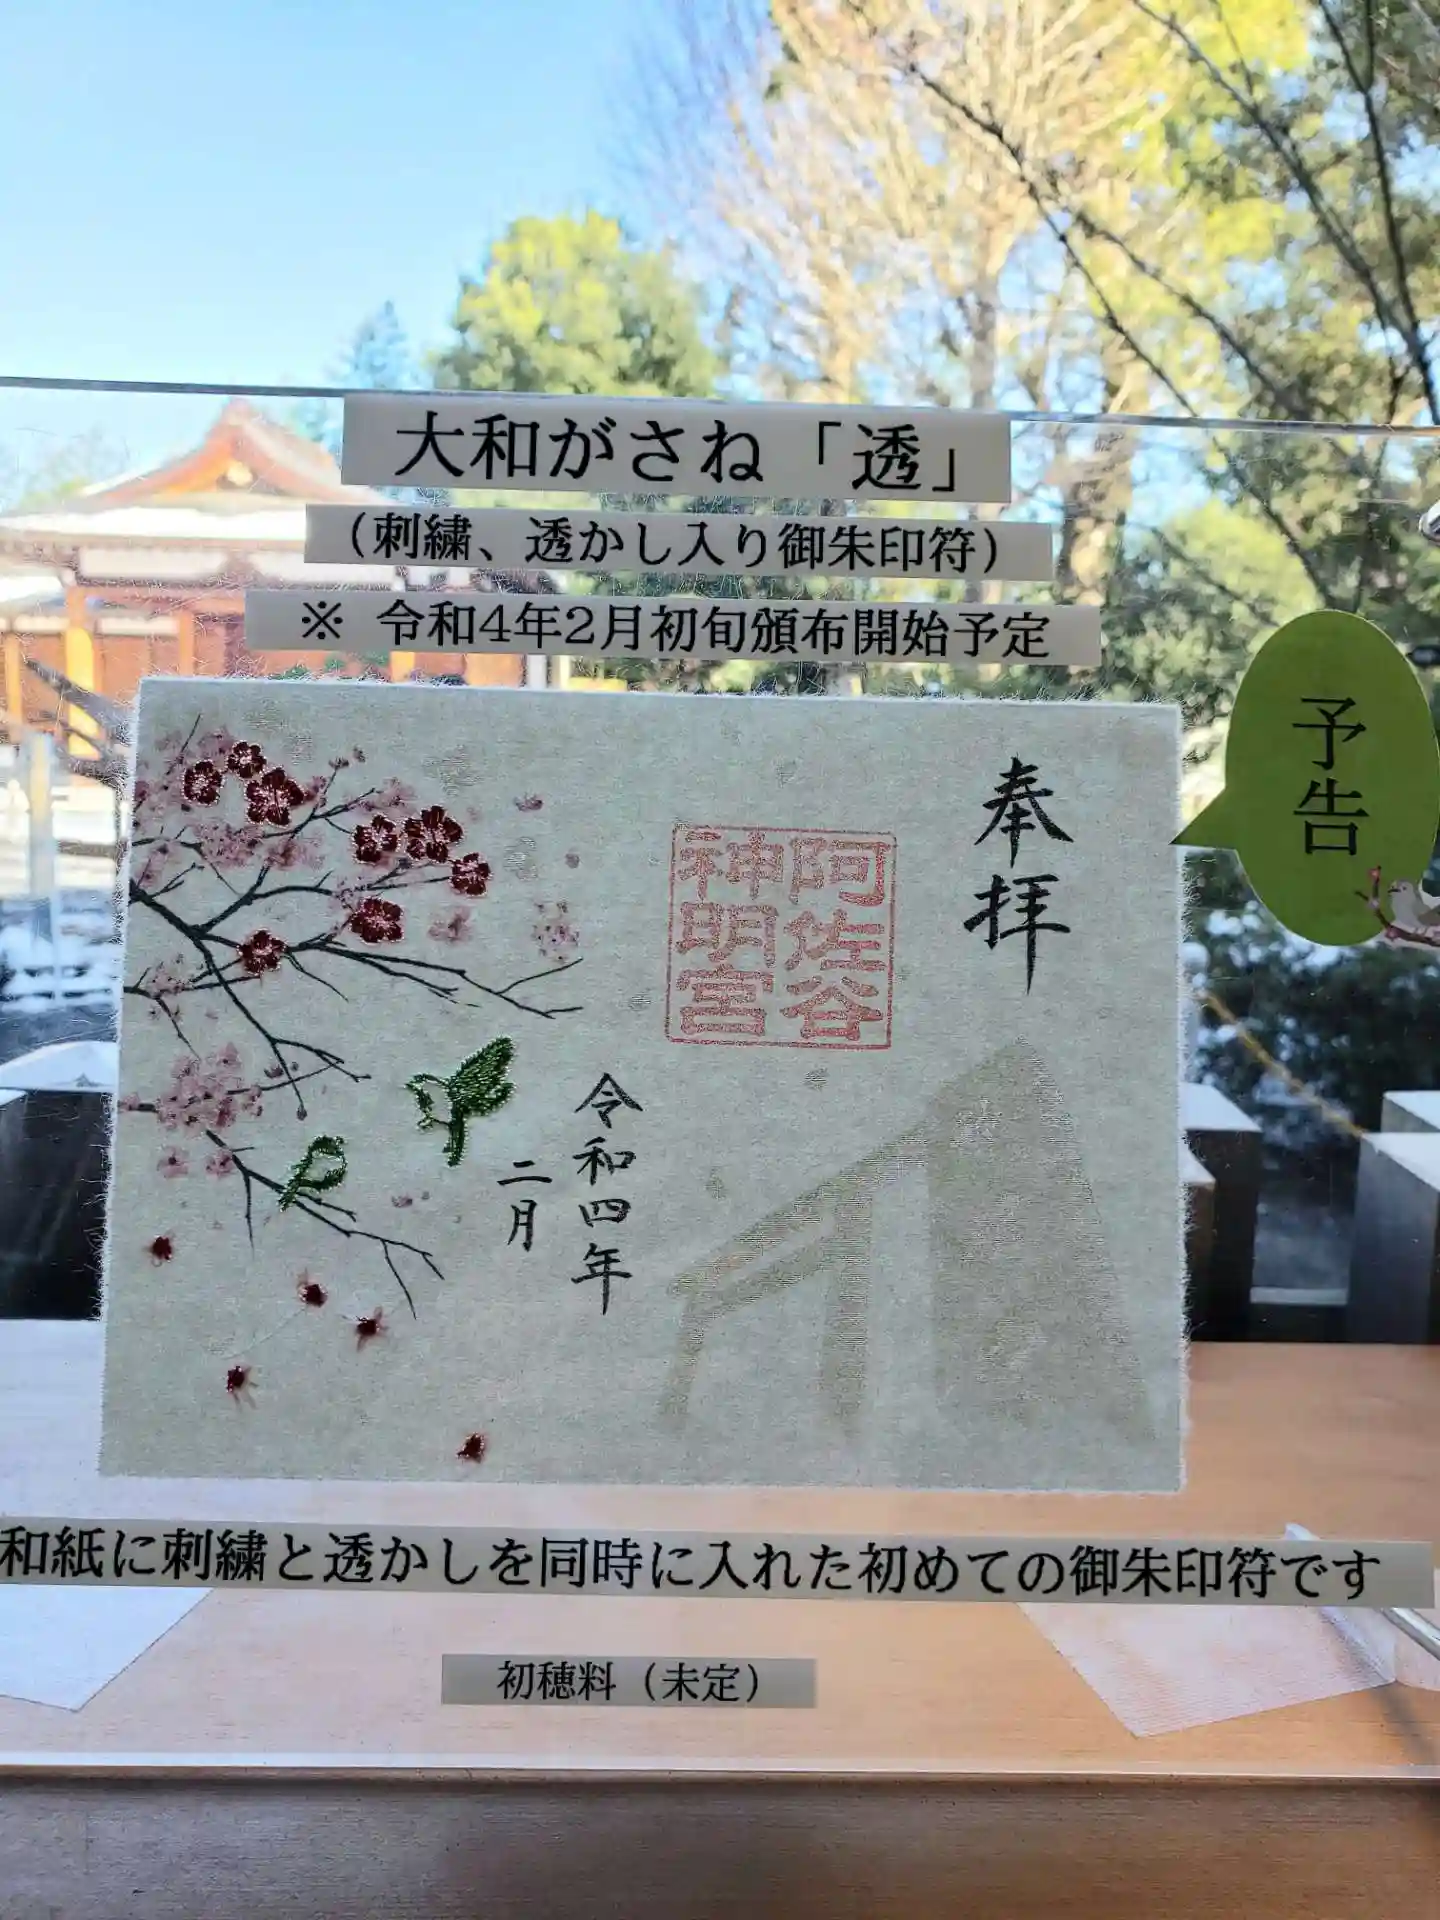 大和がさね「透」
（刺繍、透かし入り御朱印符）
※ 令和4年2月初旬頒布開始予定
予告
奉拝
阿佐谷
神明宮
令和四年
二月
和紙に刺繍と透かしを同時に入れた初めての御朱印符です
初穂料（未定）